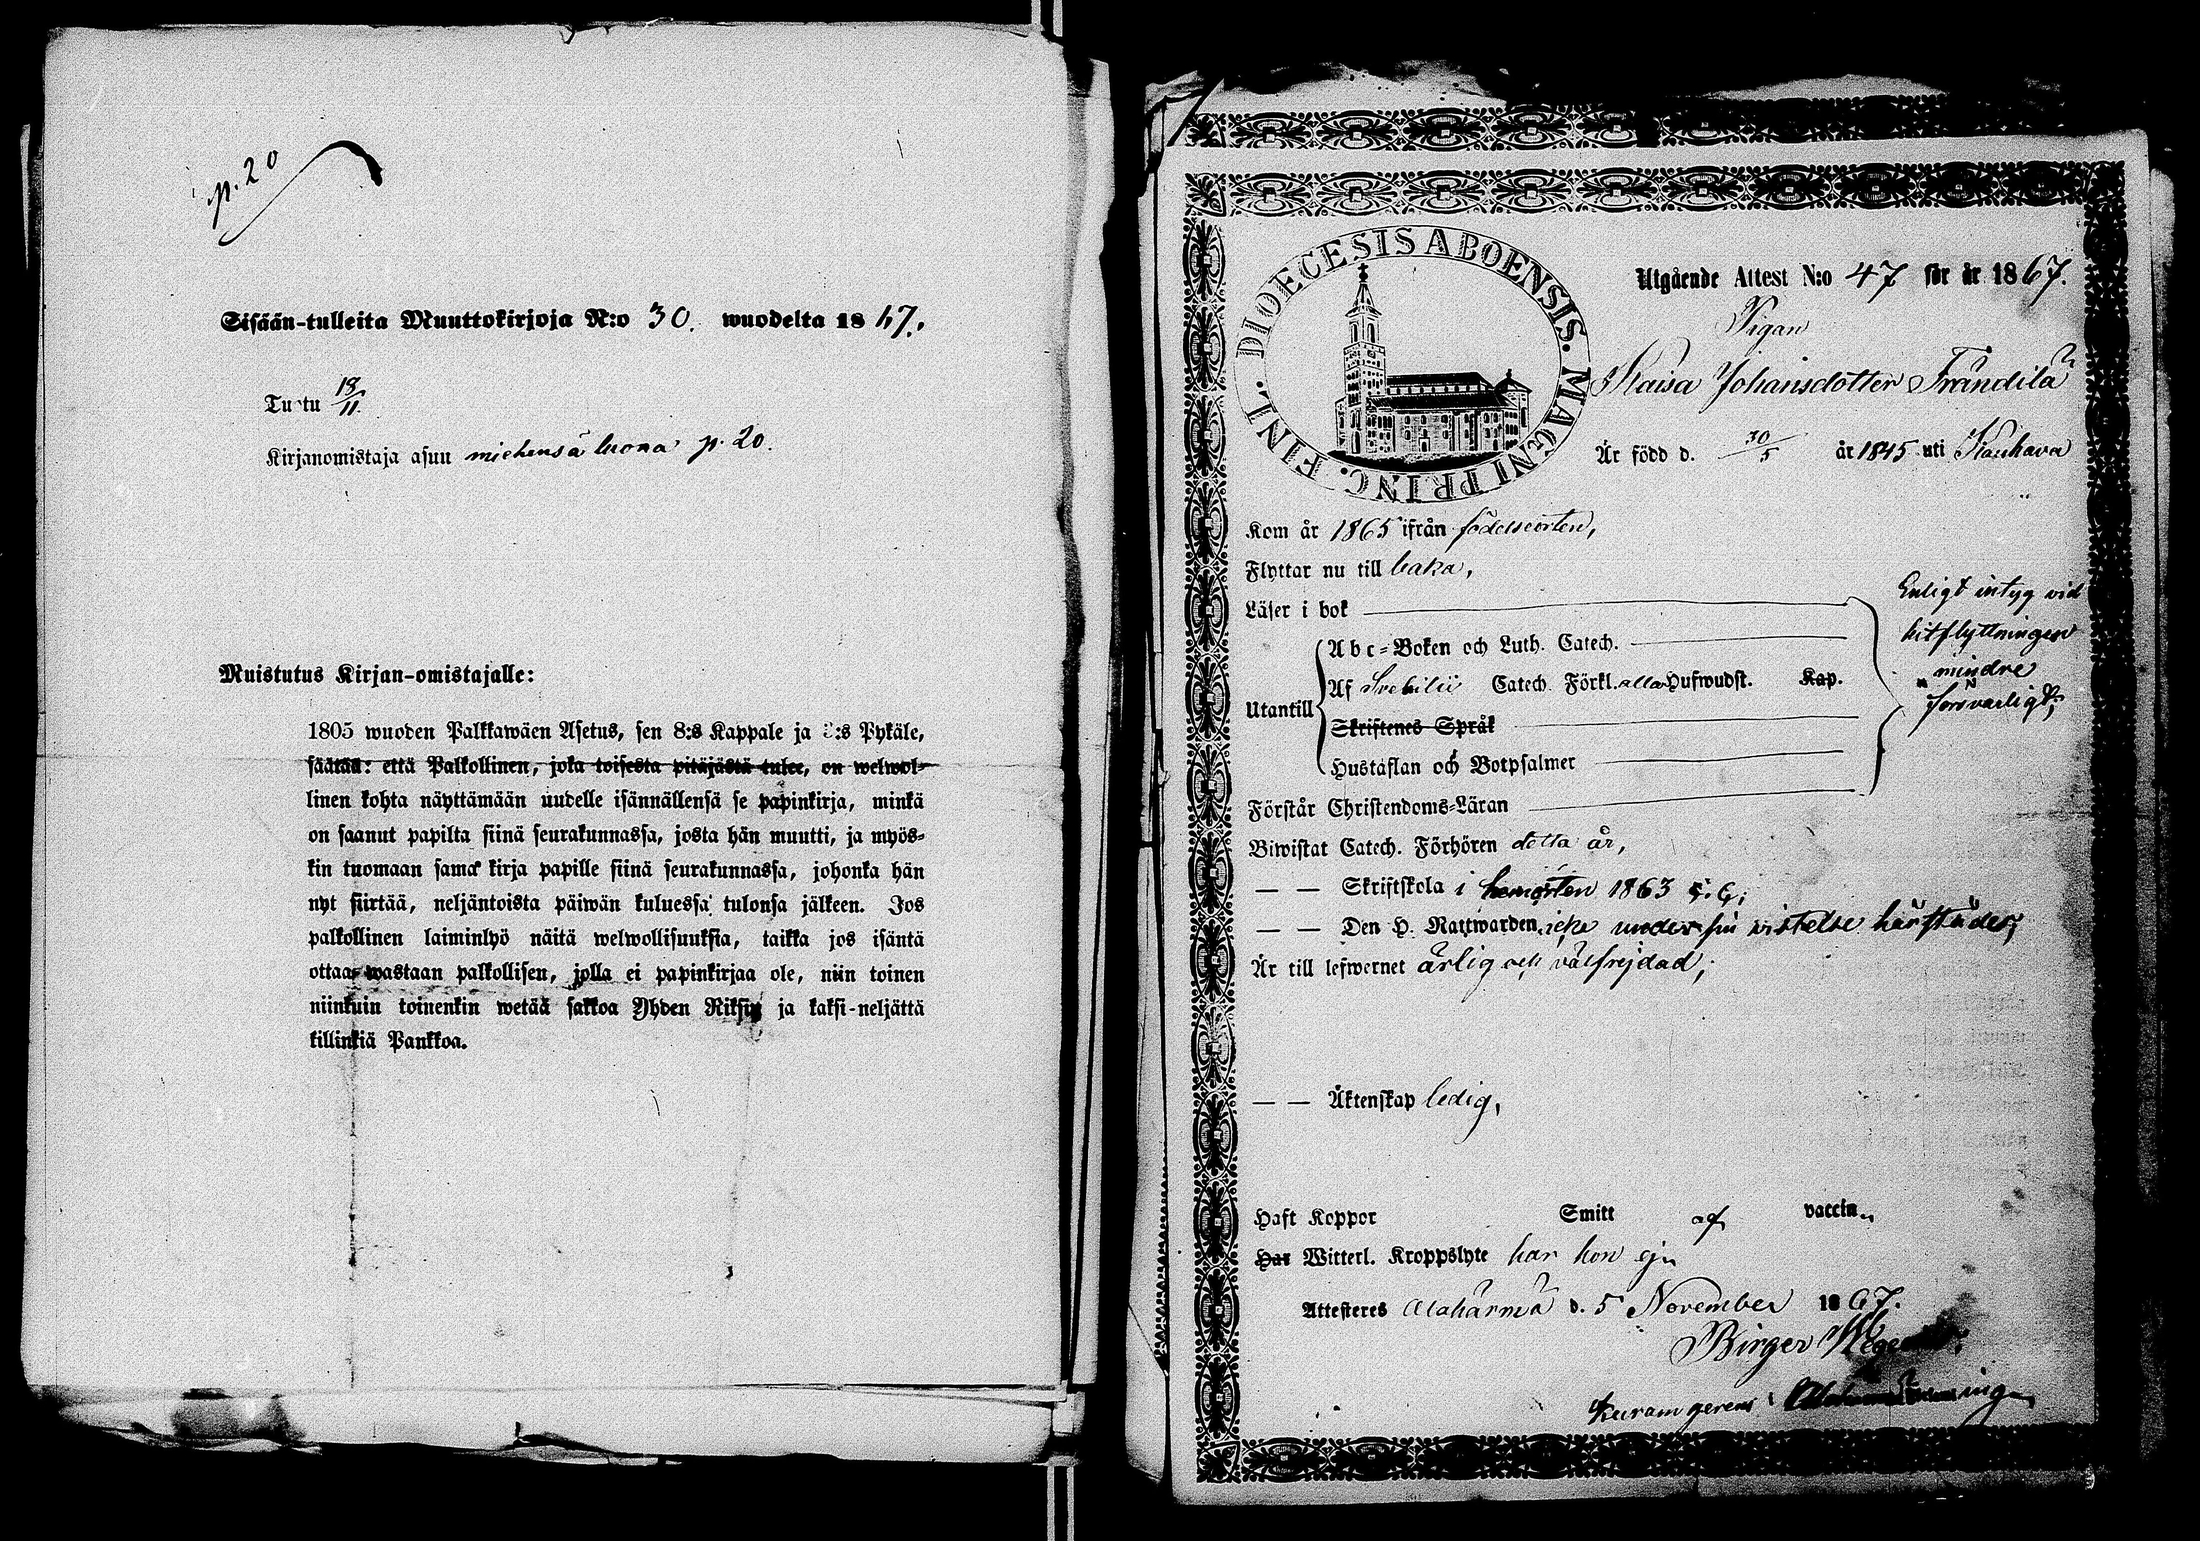 p. 20
Sisään-tulleita Muuttokirjoja N:o 30. wuodelta 1867.
Tuotu 18/11.
Kirjanomistaja asuu miehensä luona p. 20.
Muistutus Kirjan-omistajalle:
1805 wuoden Palkkawäen Asetus, sen 8:s Kappale ja 3:s Pykäle,
säätää: että Palkollinen, joka toisesta pitäjästä tulee, on welwol-
linen kohta näyttämään uudelle isännällensä se papinkirja, minkä
on saanut papilta siinä seurakunnassa, josta hän muutti, ja myös-
kin tuomaan sama kirja papille siinä seurakunnassa, johonka hän
nyt siirtää, neljäntoista päiwän kuluessa tulonsa jälkeen. Jos
palkollinen laiminlyö näitä welwollisuuksia, taikka jos isäntä
ottaa wastaan palkollisen, jolla ei papinkirjaa ole, niin toinen
niinkuin toinenkin wetää sakkoa Yhden Riksin ja kaksi-neljättä
killinkiä Pankkoa.
DIOECESIS ABOENSIS. MAGNI PRINC. FINL.
Utgående Attest N:o 47 för år 1867.
Pigan
Kaisa Johansdotter Frändilä
Är född d. 30/5 år 1845 uti Kauhava
Kom år 1865 ifrån födelseorten,
Flyttar nu till baka,
Läser i bok
Enligt intyg vid
hitflyttningen
mindre
försvarligt,
Utantill
Abc-Boken och Luth. Catech.
Af Svebilii Catech. Förkl. alla Hufwudst. Kap.
Skriftenes Språk
Hustaflan och Botpsalmer
Förstår Christendoms-Läran
Biwistat Catech. Förhören detta år,
— — Skriftskola i hemorten 1863
— — Den H. Nattwarden icke under sin vistelse härstädes;
Är till lefwernet ärlig och välfrejdad;
— — Äktenskap ledig,
Haft Koppor Smitt af vaccin.
Har Witterl. Kroppslyte har hon ej.
Attesteres Alahärmä d. 5 November 1867.
Birger